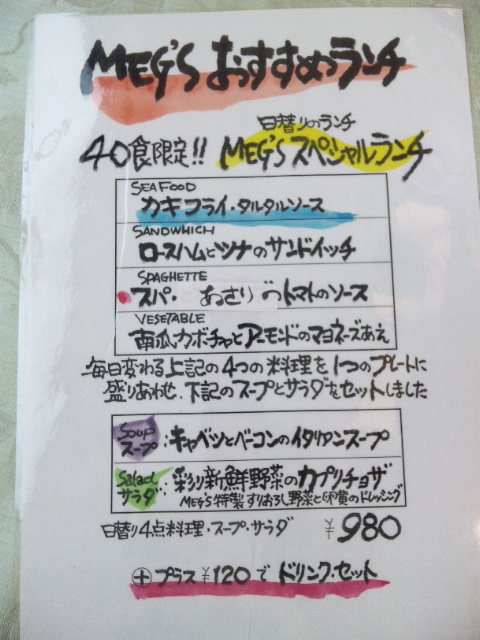 MEG'S おすすめランチ
日替りのランチ
40食限定!! MEG'S スペシャルランチ
SEA FOOD
カキフライ・タルタルソース
SANDWHICH
ロースハムとツナのサンドイッチ
SPAGHETTE
スパ・ あさりのトマトのソース
VESETABLE
南瓜カボチャとアーモンドのマヨネーズあえ
毎日変わる上記の4つの料理を1つのプレートに
盛りあわせ、下記のスープとサラダをセットしました
Soup
スープ:キャベツとベーコンのイタリアンスープ
Salad
サラダ:彩り新鮮野菜のカプリチョザ
MEG'S特製 すりおろし野菜と卵黄のドレッシング
日替り4点料理・スープ・サラダ ¥980
⊕プラス¥120でドリンク・セット